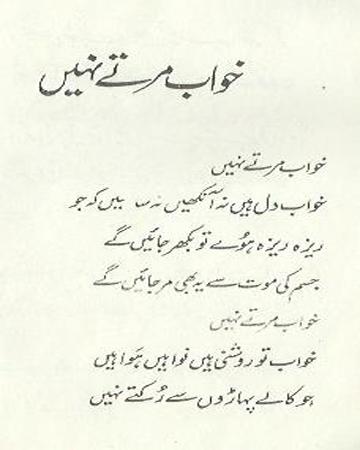 خواب مرتے نہیں
خواب مرتے نہیں
خواب دل ہیں نہ آنکھیں نہ سا سیں کہ جو
ریزہ ریزہ ہوئے تو بکھر جائیں گے
جسم کی موت سے یہ بھی مر جائیں گے
خواب مرتے نہیں
خواب تو روشنی ہیں نوا ہیں ہوا ہیں
جو کالے پہاڑوں سے رکتے نہیں